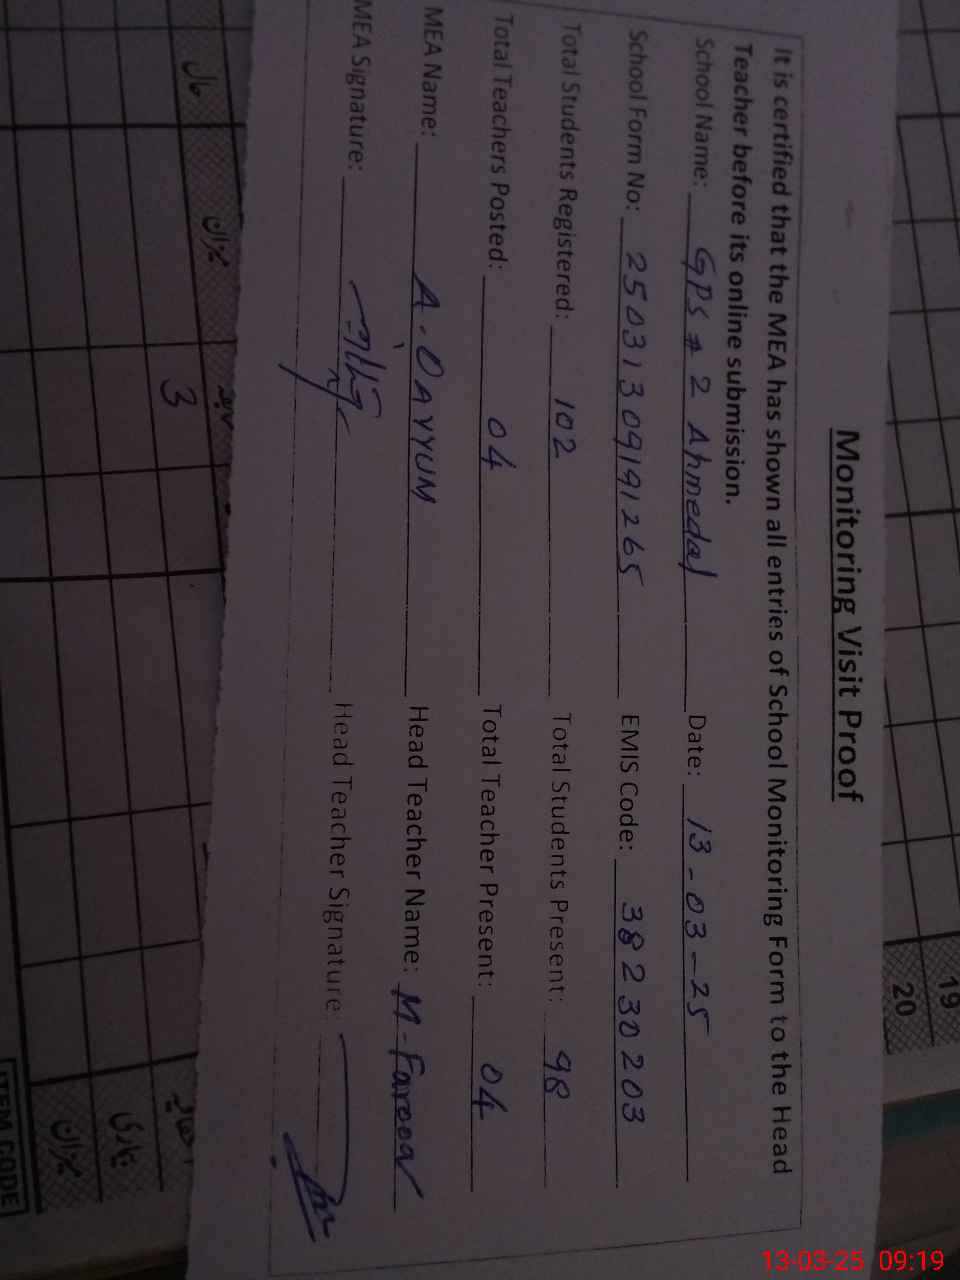 Monitoring Visit Proof
It is certified that the MEA has shown all entries of School Monitoring Form to the Head
Teacher before its online submission.
School Name: GPS # 2 Ahmedal Date: 13-03-25
School Form No: 25031309191265 EMIS Code: 38230203
Total Students Registered: 102 Total Students Present: 98
Total Teachers Posted: 04 Total Teacher Present: 04
MEA Name: A. QAYYUM Head Teacher Name: M-Farooq
MEA Signature: Head Teacher Signature:
19
20
3
ITEM CODE
13-03-25 09:19